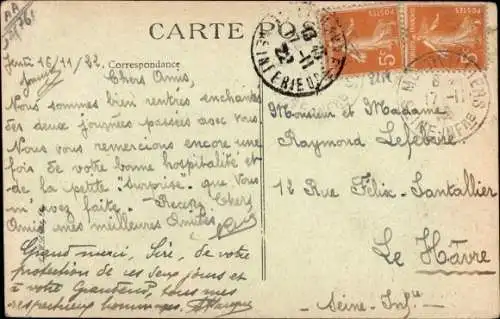 CARTE
Correspondance
16/11/22
Chers Amis,
Nous sommes bien rentrés enchantés
des deux journées passées avec vous
Nous vous remercions encore une
fois de votre bonne hospitalité et
de la petite "surprise" que vous
m'avez faite - Recevez Chers
Amis mes meilleures Amitiés
Grand merci, Sire, de votre
protection de ces deux jours et
à votre Grandeur, tous mes
respectueux hommages.
POSTES
5c
POSTES
5c
Monsieur et Madame
Raymond Lefebvre
12 Rue Félix-Santallier
Le Hâvre
Seine-Infre